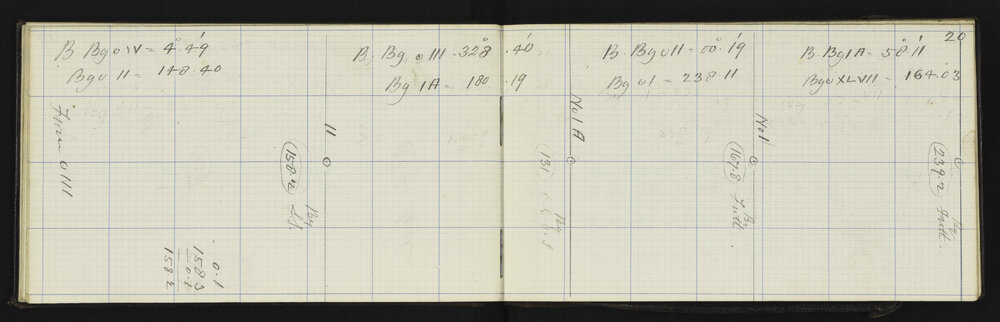 20
B Bg o IV = 4°.49'
Bg o II = 148.40
B Bg o III 328°.40'
Bg IA = 180.19
B Bg o II = 00°.19'
Bg o I = 238.11
B Bg IA = 58°.11'
Bg o XLVII = 164.03
From o III
II
158.2
By
0.1
158.3
0.1
158.2
No 1 A
131
By
No 1
167.8
By
239.2